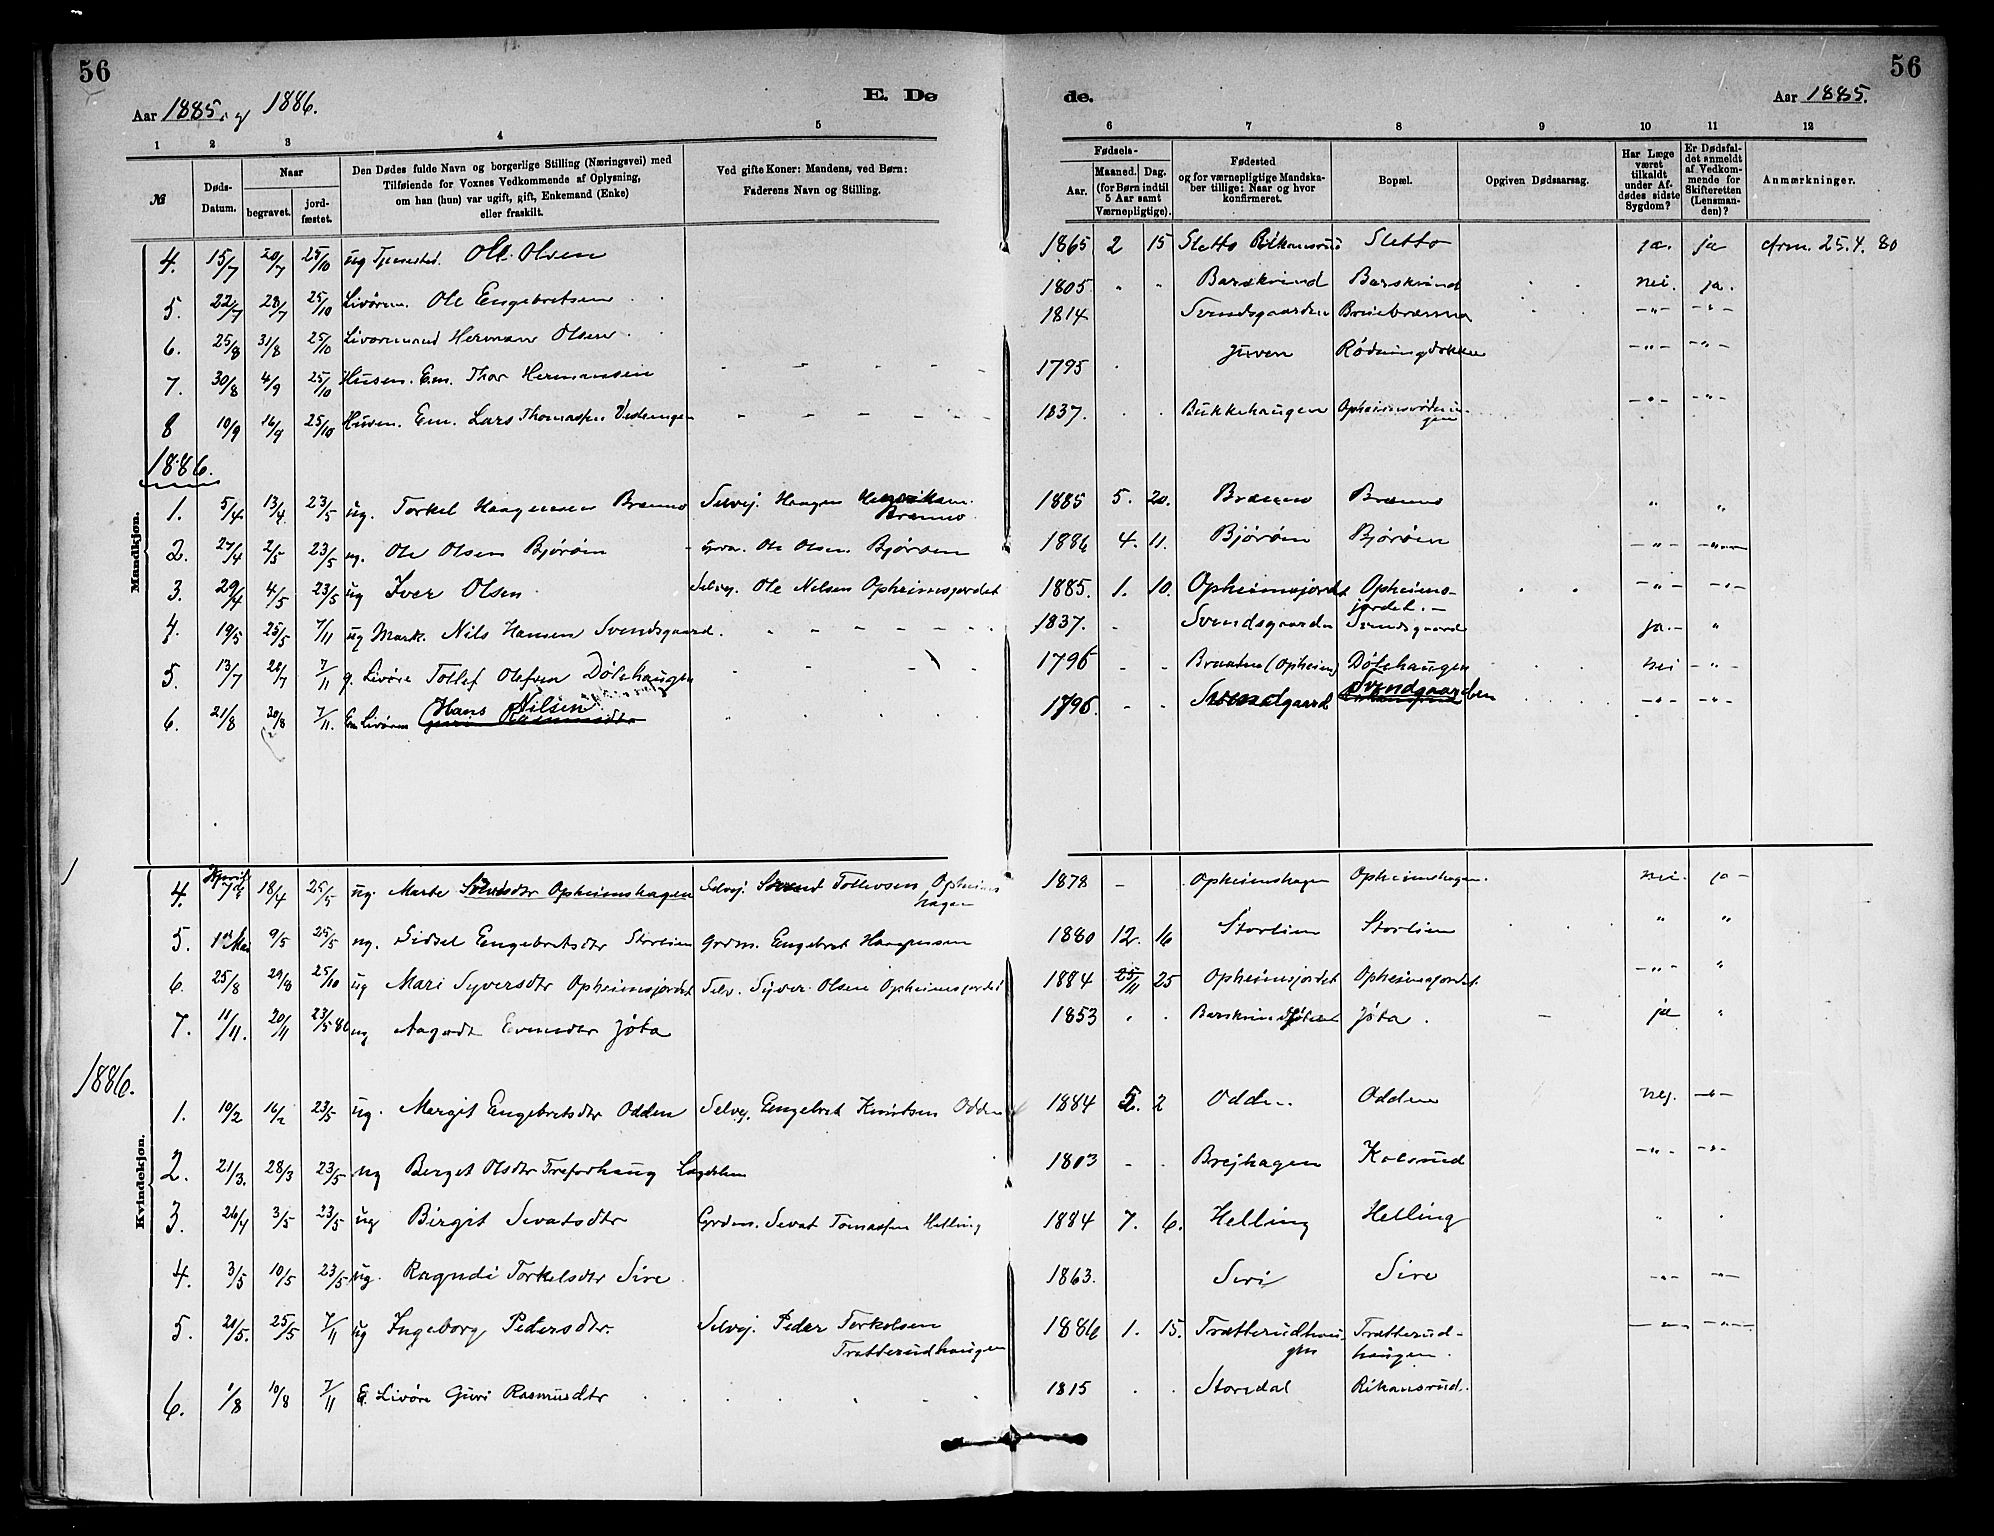 56
56
Aar 1885. og 1886.
E. Dø
de.
Aar 1885.
1 2 3 4 5 6 7 8 9 10 11 12
№
Døds-
Datum.
Naar
begravet.
jord-
fæstet.
Den Dødes fulde Navn og borgerlige Stilling (Næringsvei) med
Tilføiende for Voxnes Vedkommende af Oplysning,
om han (hun) var ugift, gift, Enkemand (Enke)
eller fraskilt.
Ved gifte Koner: Mandens, ved Børn:
Faderens Navn og Stilling.
Fødsels-
Aar.
Maaned. Dag.
(for Børn indtil
5 Aar samt
Værnepligtige).
Fødested
og for værnepligtige Mandska-
ber tillige: Naar og hvor
konfirmeret.
Bopæl.
Opgiven Dødsaarsag.
Har Læge
været
tilkaldt
under Af-
dødes sidste
Sygdom?
Er Dødsfal-
det anmeldt
af Vedkom-
mende for
Skifteretten
(Lensman-
den)?
Anmærkninger.
Mandkjøn.
4. 15/7 20/7 25/10 ug Tjenested. Ole Olsen 1865 2 15 Sletto Rikansrud Sletto ja. ja 25.4.80
5. 22/7 28/7 25/10 Livörm. Ole Engebretsen 1805 " " Barskrind Barskrind nei. ja.
6. 25/8 31/8 25/10 Livörmand Herman Olsen 1814 Svendsgaarden -"- -"-
7. 30/8 4/9 25/10 Husm. Em. Thor Hermansen - - - - - 1795 Juven -"- -"-
8 10/9 16/9 25/10 Husm. Em. Lars Thomassen - - - - - 1837. Bukkehaugen -"- -"-
1886.
1. 5/4 13/4 23/5 ug. Torkel Haagensen Brenno Selvej. Haagen Brenno. 1885 5. 20. Brenno Brenno " "
2. 27/4 2/5 23/5 ug. Ole Olsen Björöen Ole Olsen Björöen 1886 4. 11. Björöen Björöen -"- -"-
3. 29/4 4/5 23/5 ug Iver Olsen Selvej. Ole Nilsen Opheimsjordet 1885. 1. 10. Opheimsjordet Opheims-
jordet.- -"- -"-
4. 19/5 25/5 7/11 ug Mark. Nils Hansen Svendsgaard. - - - - - 1837. - Svendsgaarden Svendsgaard ja.- "
5. 13/7 20/7 7/11 g. Livöre Tollef Olefsen Dölehaugen 1796 - - Braaten (Opheim) Dölehaugen nei -"-
6. 21/8 30/8 7/11. Em Livörm Hans Nilsen 1796. - - Svendsgaard Svendgaarden -"- -"-
Kvindekjøn.
4. April 7de 18/4 25/5 ug. Marte Opheimshagen Selvej. Tollevsen Opheims
hagen 1878 - Opheimshagen Opheimshagen. nei. ja -
5. 1ste Mai 9/5 25/5 ug. Sidsel Engebretsdtr Storlien Grdm. Engebret Haagensen 1880 12. 16 Storlien Storlien " "
6. 25/8 29/8 25/10 ug Mari Syversdtr Opheimsjordet Selv. Syver Olsen Opheimsjordet 1884 25/11 25 Opheimsjordet Opheimsjordet. -"- "
7. 11/11. 20/11 23/5 86 ug Aagodt Jöta 1853 Jöta. - ja "
1886.
1. 10/2 16/2 23/5 ug. Margit Engebretsdtr Odden Selvej. Engebret Knutsen Odden 1884 5. 2 Odden Odden nej. -"-
2. 21/3. 28/3 23/5 ug Berget Olsdtr Treforhaug 1803 - Brejhagen Kolsrud -"- -"-
3. 26/4 3/5 23/5 ug Birgit Sevatsdtr Grdm. Sevat Tomassen Helling 1884 7. 6. Helling Helling
4. 3/5 10/5 23/5 ug. Ragndi Torkelsdtr Sire 1863. Siri Sire -"- -"-
5. 20/5. 25/5 7/11 ug Ingeborg Pedersdtr. Selvej. Peder Torkelsen
Tratterudhaugen 1886 1. 15. Trætterudhau-
gen Trætterud-
haugen. -"- -"-
6. 1/8 10/8 7/11 E. Livöre Guri Rasmusdtr 1815 Storedal Rikansrud.